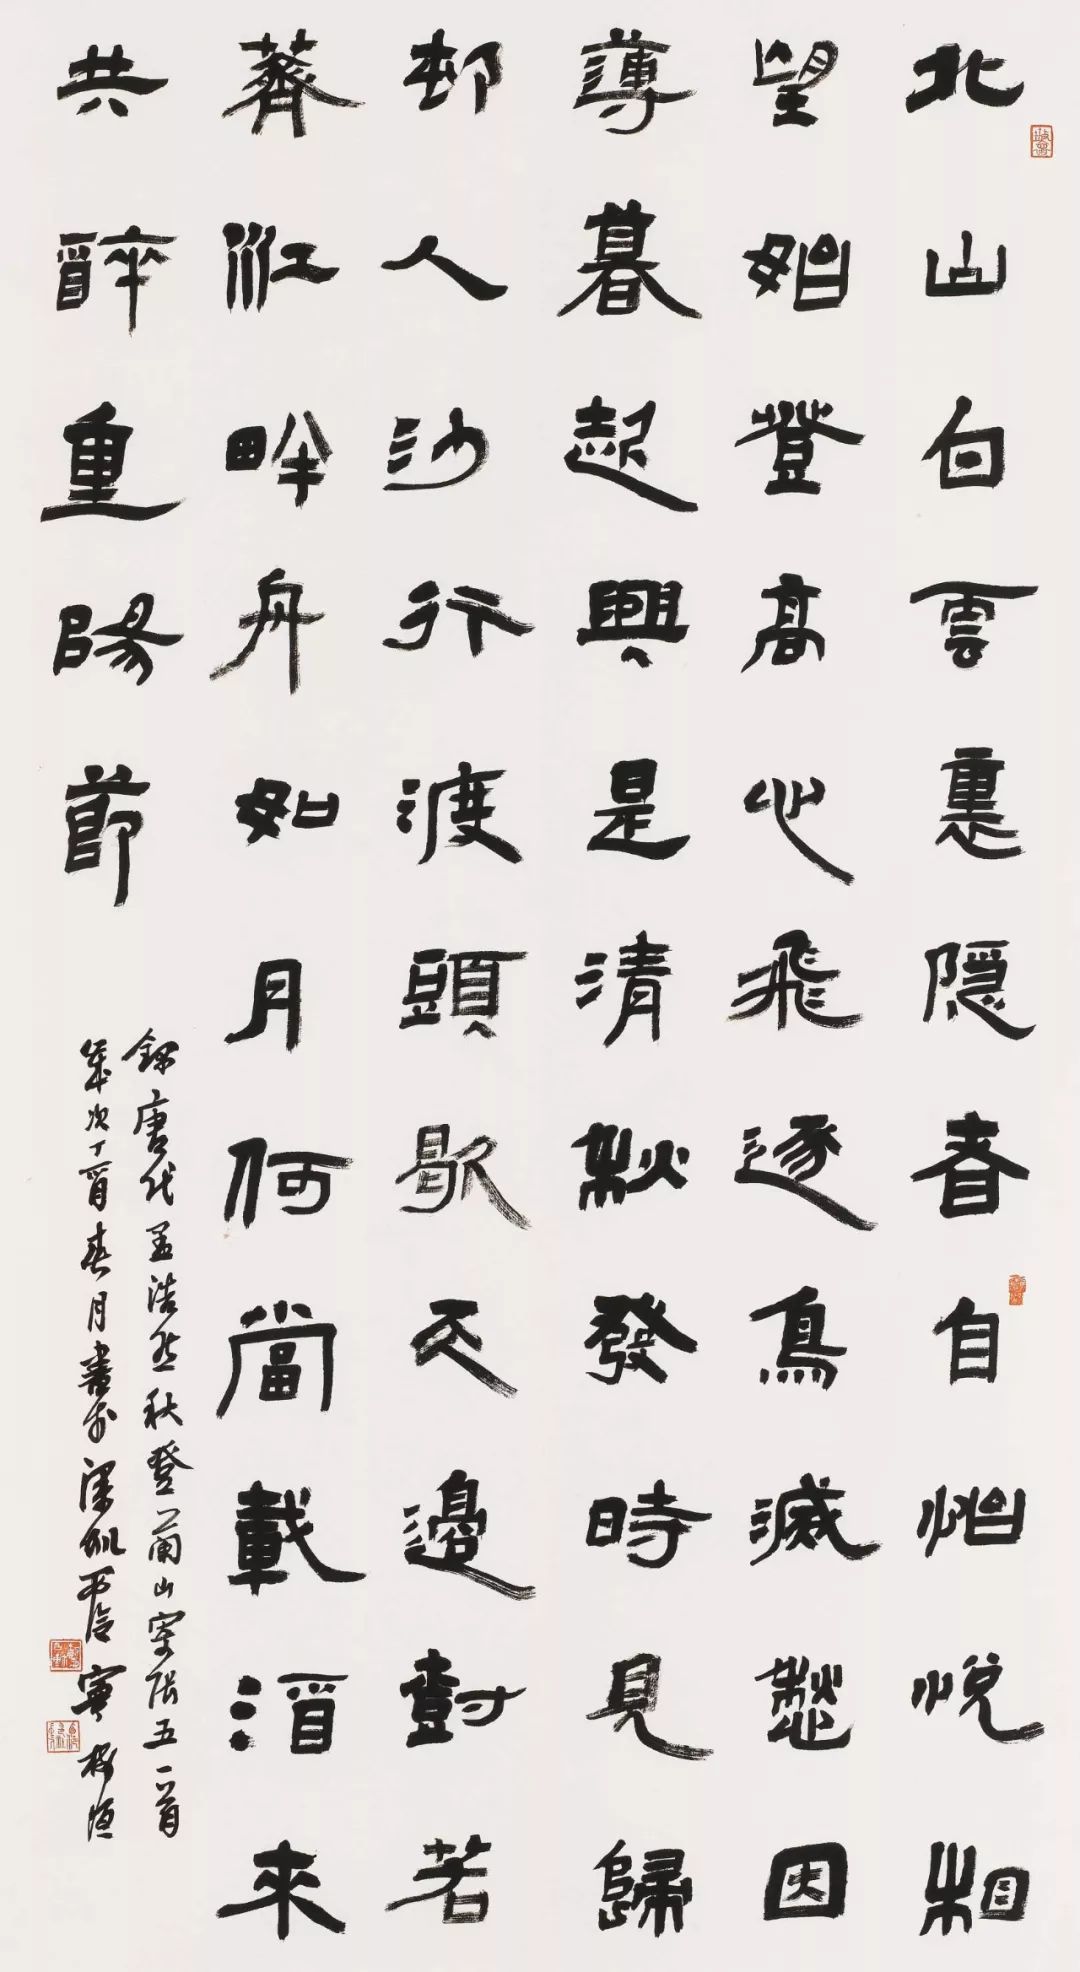 北山白雲裏隱者自怡悅相
望始登高心飛逐鳥滅愁因
薄暮起興是清秋發時見歸
邨人沙行渡頭歇天邊尌若
薺江畔舟如月何當載酒來
共醉重陽節
錄唐代孟浩然秋登蘭山寄張五一首
歲次丁酉春月書於深圳寧樹恒